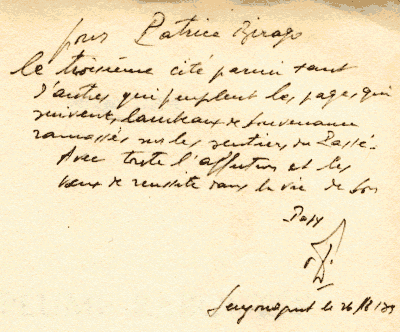 pour Patrice Birago
le troisième cité parmi tant
d'autres qui peuplent les pages qui
suivent, lambeaux de souvenance
ramassés sur les sentiers du Passé.
Avec toute l'affection et les
vœux de réussite dans la vie de son
le 26